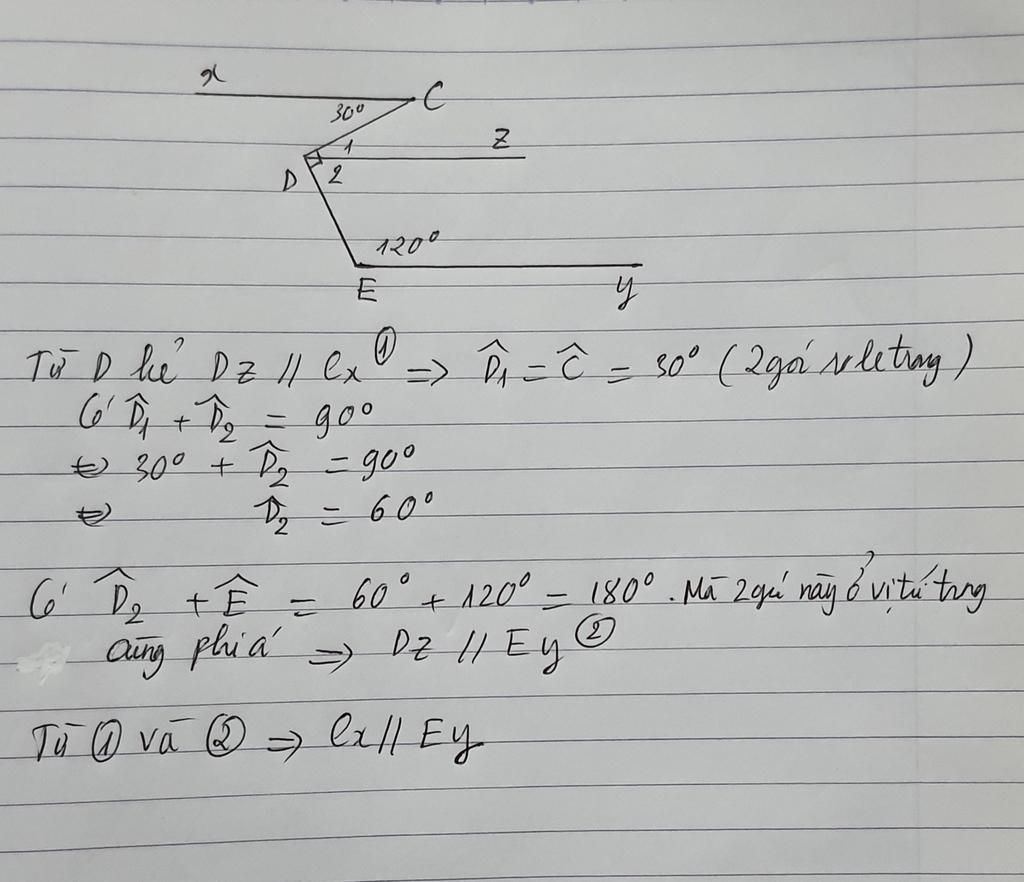 x
30° C
1 z
D 2
120°
E y
Từ D kẻ Dz // Cx ① ⇒ D̂₁ = Ĉ = 30° (2 góc so le trong)
Có D̂₁ + D̂₂ = 90°
⇔ 30° + D̂₂ = 90°
⇔ D̂₂ = 60°
Có D̂₂ + Ê = 60° + 120° = 180°. Mà 2 góc này ở vị trí trong
cùng phía ⇒ Dz // Ey ②
Từ ① và ② ⇒ Cx // Ey